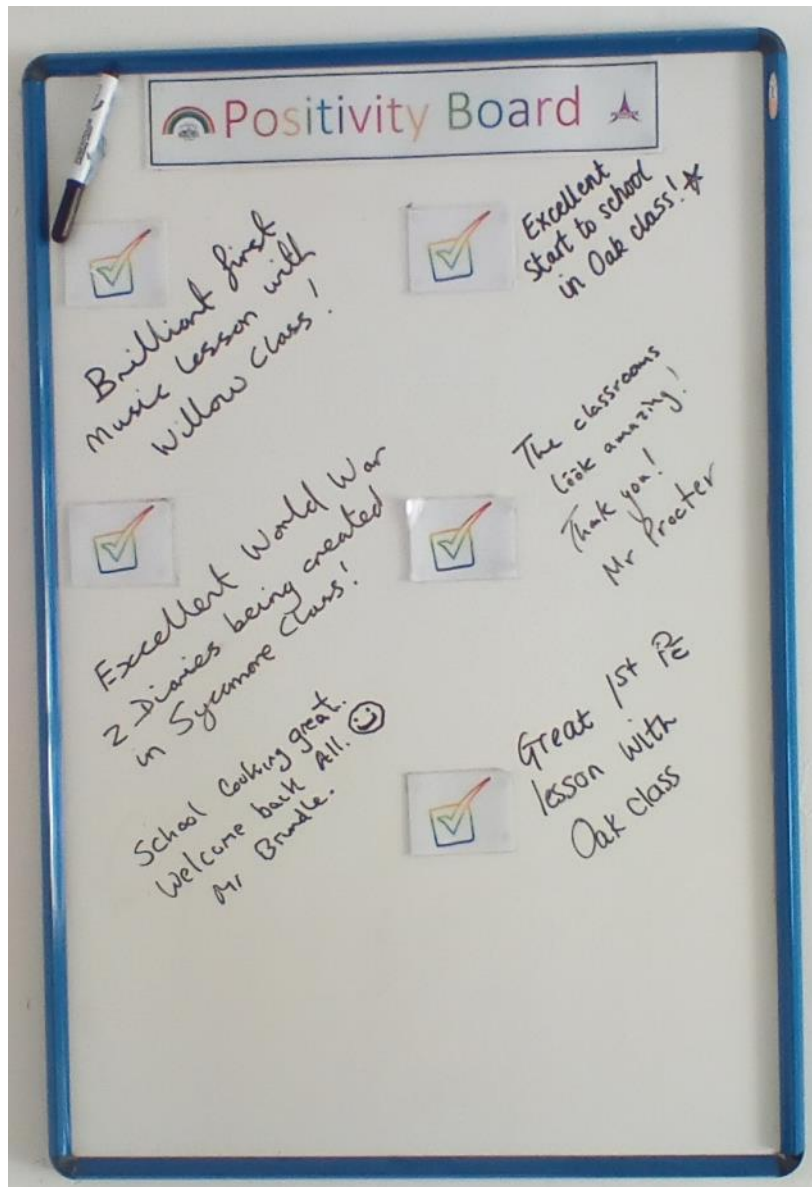 Positivity Board
Brilliant first
Music Lesson with
Willow Class!
Excellent
start to school
in Oak class!
Excellent World War
2 Diaries being created
in Sycamore Class!
The classrooms
look amazing!
Thank you!
Mr Procter
School looking great.
Welcome back All.
Mr Brundle.
Great 1st PE
lesson with
Oak class